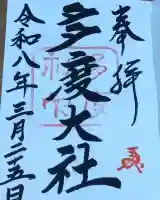 奉拝
多度大社
令和八年三月二五日